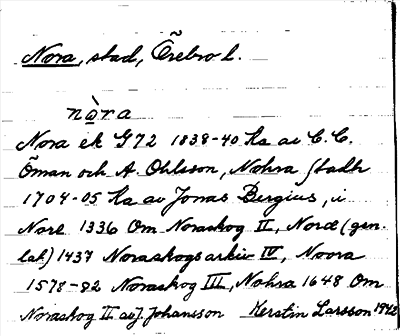 Nora, stad, Örebro l.
nòra
Nora ek G72 1838-40 Ka av C. C.
Öman och A. Ohlsson, Nohra stadh
1704-05 Ka av Jonas Bergius, i
Nore 1336 Om Noraskog II, Noræ (gen.
lat) 1437 Noraskogsarkiv IV, Noora
1578-82 Noraskog III, Nohra 1648 Om
Noraskog II av J. Johansson Kerstin Larsson 1942